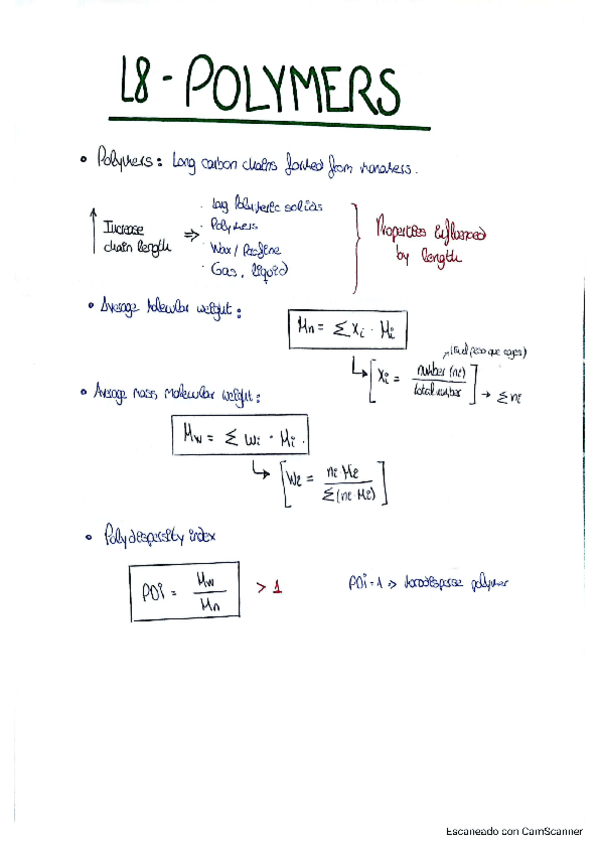 L8 - POLYMERS
• Polymers: Long carbon chains formed from monomers.
↑ Increase chain length ⇒
· Long Polymeric solids
· Polymers
· Wax / Paraffine
· Gas, liquid
Properties influenced by length
• Average Molecular weight:
Mn = Σ xi · Mi
(del peso que coges)
[xi = number (ni) / total number] → Σ ni
• Average mass, molecular weight:
Mw = Σ wi · Mi.
[wi = ni Mi / Σ(ni Mi)]
• Polydispersity index
PDi = Mw / Mn > 1
PDi = 1 ⇒ monodisperse polymer
Escaneado con CamScanner